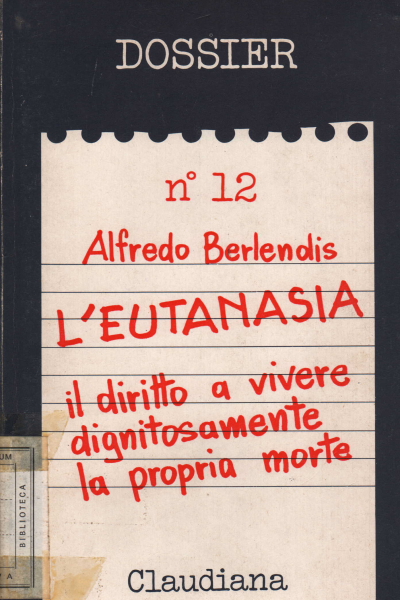 DOSSIER
n° 12
Alfredo Berlendis
L'EUTANASIA
il diritto a vivere
dignitosamente
la propria morte
UM
BIBLIOTECA
A
Claudiana